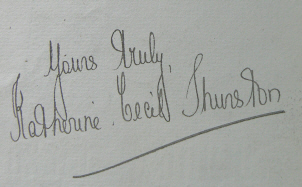 Yours truly,
Katherine. Cecil Thurston